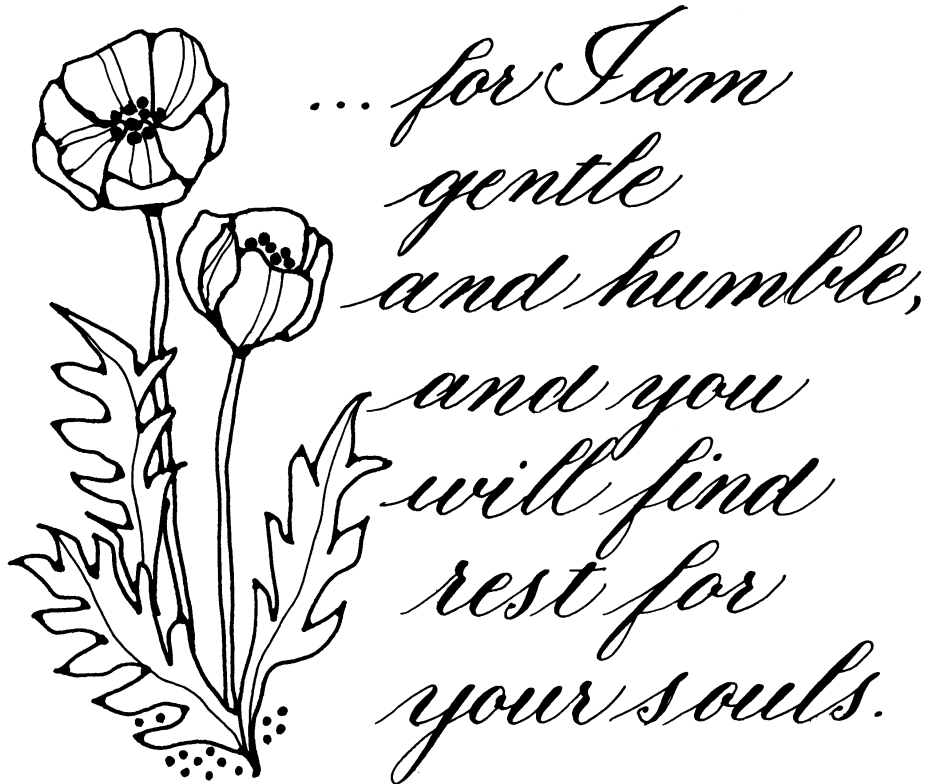 ... for I am
gentle
and humble,
and you
will find
rest for
your souls.